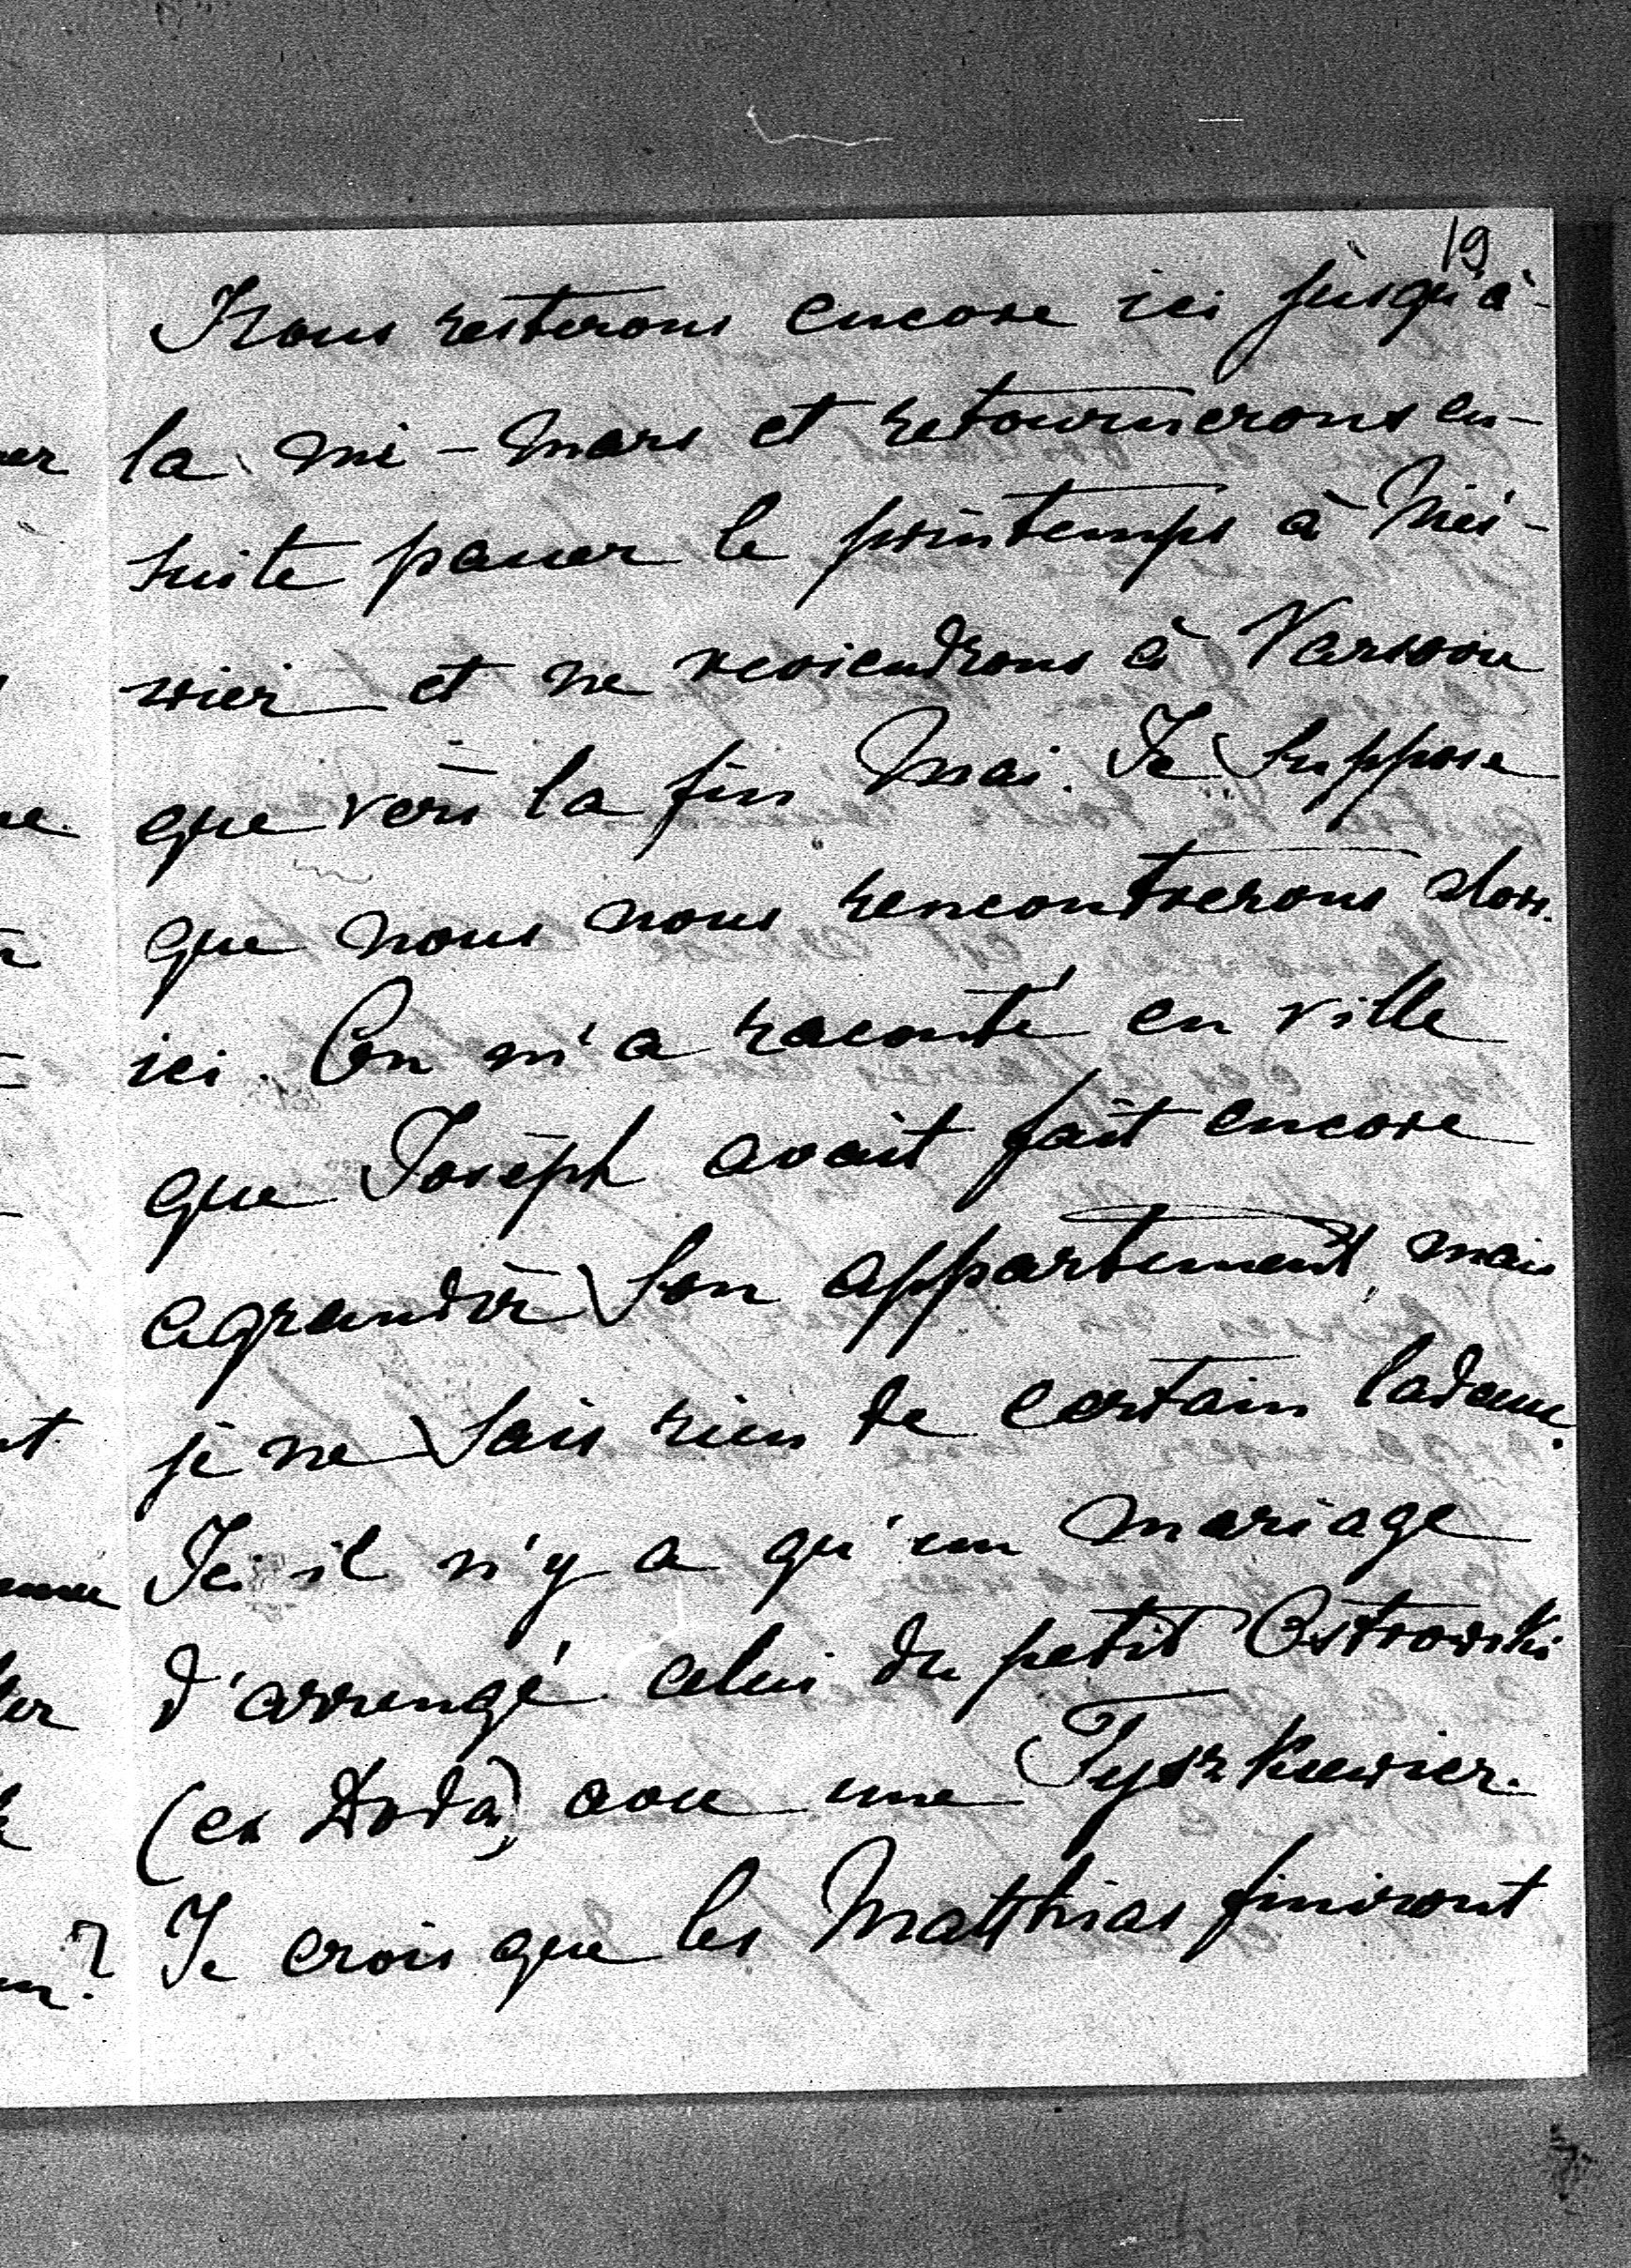 19
Nous resterons encore ici jusqu'à
la mi-Mars et retournerons en-
suite passer le printemps à Niés-
wiez et ne reviendrons à Varsovie
que vers la fin Mai. Je suppose
que nous nous rencontrerons alors
ici. On m'a raconté en ville
que Joseph avait fait encore
agrandir son appartement, mais
je ne sais rien de certain ladessus.
Ici il n'y a qu'un mariage
d'arrangé celui du petit Ostrowski
(ex Doda) avec une Tyszkiewicz.
Je crois que les Matthias finiront